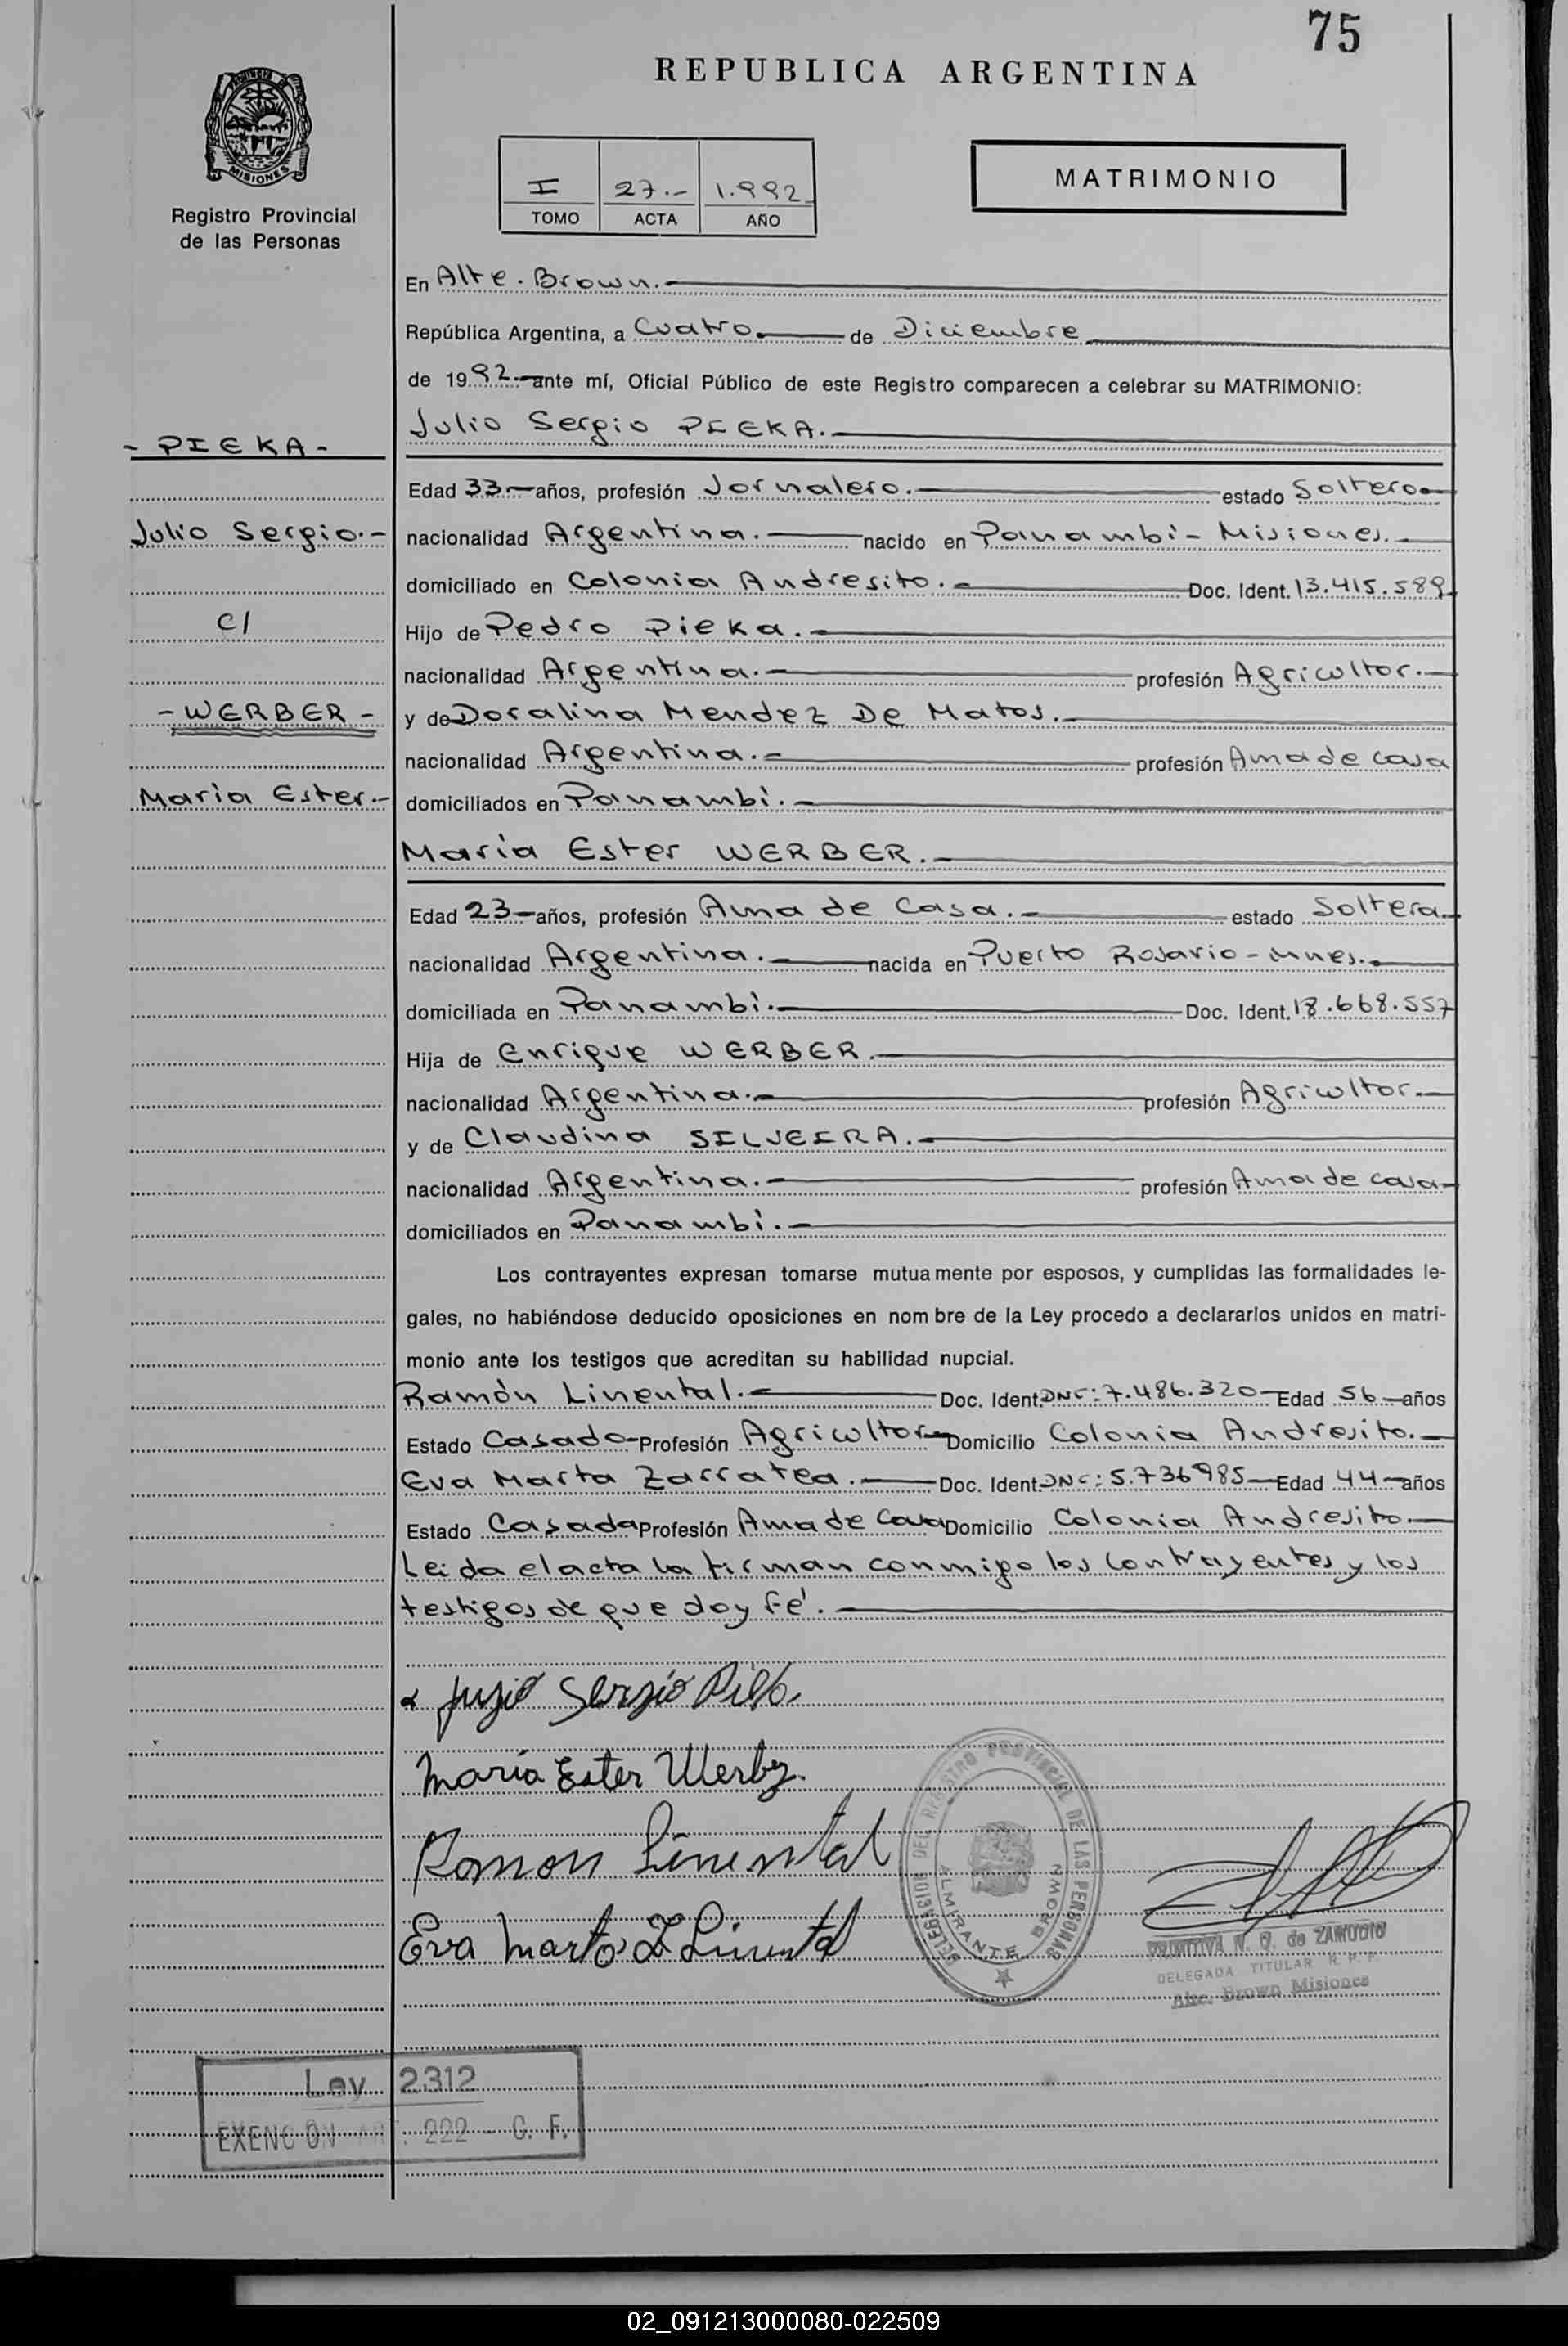 75
REPUBLICA ARGENTINA
MISIONES
Registro Provincial
de las Personas
I 27.- 1.992
TOMO ACTA AÑO
MATRIMONIO
En Alte. Brown.-
República Argentina, a Cuatro.- de Diciembre
de 1992.- ante mí, Oficial Público de este Registro comparecen a celebrar su MATRIMONIO:
- PIEKA -
Julio Sergio PIEKA.-
Edad 33.- años, profesión Jornalero.- estado Soltero.-
Julio Sergio.-
nacionalidad Argentina.- nacido en Panambí - Misiones.-
domiciliado en Colonia Andresito.- Doc. Ident. 13.415.589
c/
Hijo de Pedro Pieka.-
nacionalidad Argentina.- profesión Agricultor.-
- WERBER -
y de Doralina Mendez De Matos.-
nacionalidad Argentina.- profesión Ama de casa
Maria Ester.-
domiciliados en Panambí.-
Maria Ester WERBER.-
Edad 23.- años, profesión Ama de Casa.- estado Soltera.-
nacionalidad Argentina.- nacida en Puerto Rosario - Mnes.-
domiciliada en Panambí.- Doc. Ident. 18.668.557
Hija de Enrique WERBER.-
nacionalidad Argentina.- profesión Agricultor.-
y de Claudina SILVEIRA.-
nacionalidad Argentina.- profesión Ama de casa-
domiciliados en Panambí.-
Los contrayentes expresan tomarse mutuamente por esposos, y cumplidas las formalidades le-
gales, no habiéndose deducido oposiciones en nombre de la Ley procedo a declararlos unidos en matri-
monio ante los testigos que acreditan su habilidad nupcial.
Ramón Linental.- Doc. Ident. DNI: 7.486.320- Edad 56 - años
Estado Casado- Profesión Agricultor- Domicilio Colonia Andresito.-
Eva Marta Zarratea.- Doc. Ident. DNI: 5.736985- Edad 44- años
Estado Casada Profesión Ama de Casa Domicilio Colonia Andresito.-
Leida el acta la firman conmigo los contrayentes y los
testigos de que doy fé.-
Julio Sergio
María Ester Werber
Ramon Linental
Eva Marta Z Linental
DELEGACION DEL REGISTRO PROVINCIAL DE LAS PERSONAS
ALMIRANTE BROWN
PRIMITIVA N. Q. de ZAMUDIO
DELEGADA TITULAR R. P. P.
Alte. Brown Misiones
Ley 2312
EXENCION ART. 222 - C. F.
02_091213000080-022509